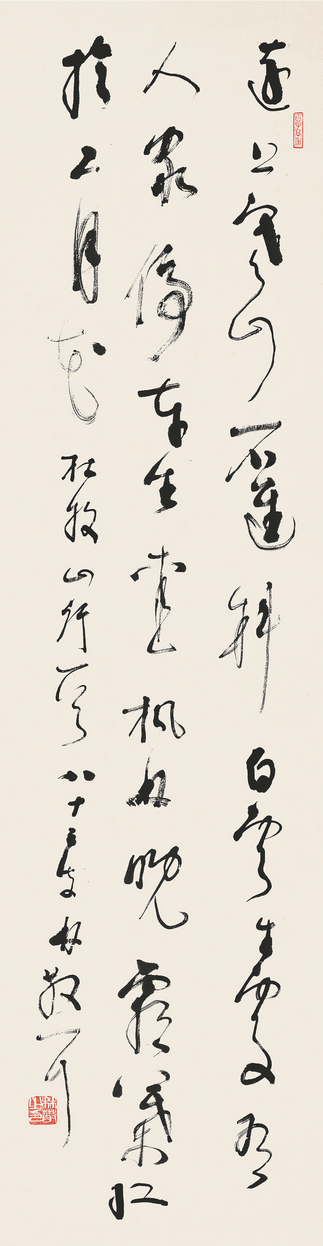 遠上寒山石徑斜白雲生處有
人家停車坐愛楓林晚霜葉紅
於二月花杜牧山行一首八十三叟林散耳